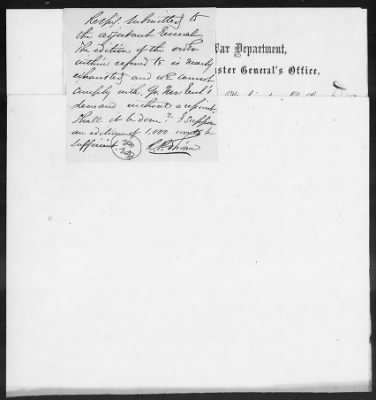 Respf. submitted to
the adjutant General
The edition of the order
within referred to is nearly
exhausted and we cannot
comply with Qr. Mr. Genl's
demand without a reprint.
Shall it be done? I suppose
an edition of 1,000 would be
sufficient.
War Department,
ster General's Office,